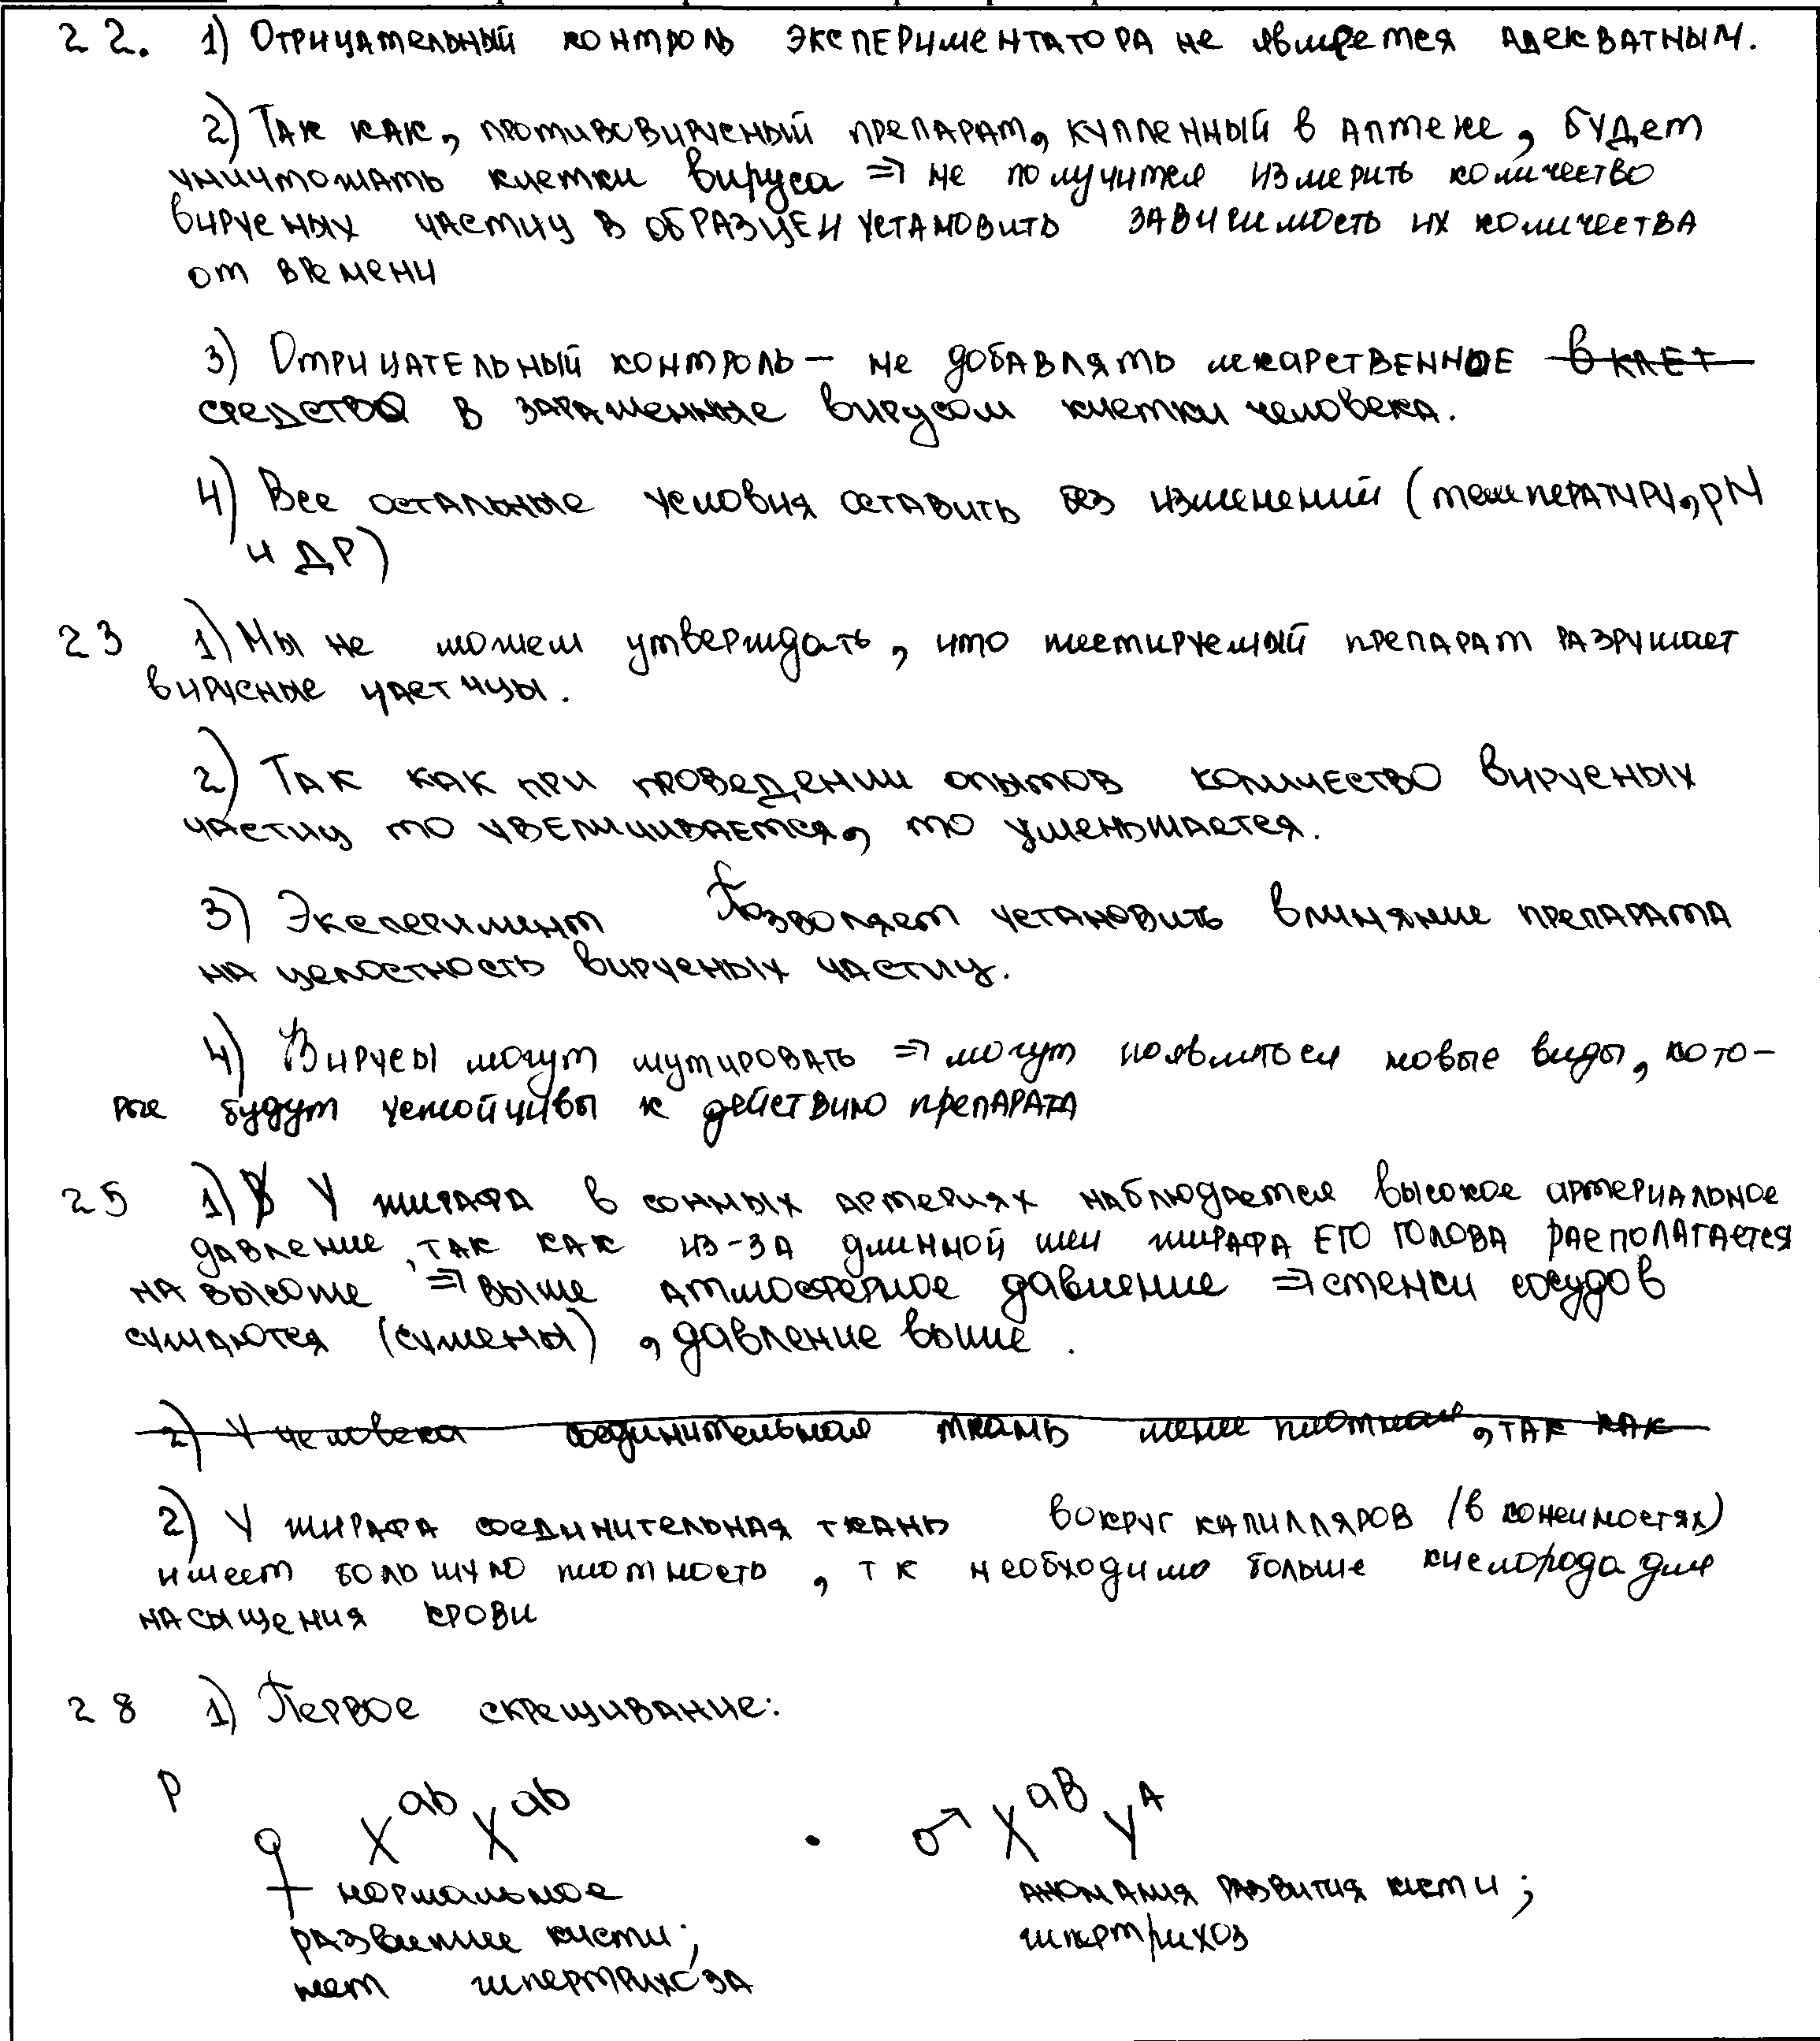 22. 1) Отрицательный контроль экспериментатора не является адекватным.
2) Так как, противовирусный препарат, купленный в аптеке, будет
уничтожать клетки вируса => не получится измерить количество
вирусных частиц в образце и установить зависимость их количества
от времени
3) Отрицательный контроль – не добавлять лекарственное в клет
средство в зараженные вирусом клетки человека.
4) Все остальные условия оставить без изменений (температуру, pH
и др)
23 1) Мы не можем утверждать, что тестируемый препарат разрушает
вирусные частицы.
2) Так как при проведении опытов количество вирусных
частиц то увеличивается, то уменьшается.
3) Эксперимент позволяет установить влияние препарата
на целостность вирусных частиц.
4) Вирусы могут мутировать => могут появиться новые виды, кото-
рые будут устойчивы к действию препарата
25 1) У жирафа в сонных артериях наблюдается высокое артериальное
давление, так как из-за длинной шеи жирафа его голова располагается
на высоте => выше атмосферное давление => стенки сосудов
сужаются (сужены), давление выше.
2) У человека соединительная ткань менее плотная, так как
2) У жирафа соединительная ткань вокруг капилляров (в конечностях)
имеет большую плотность, т к необходимо больше кислорода для
насыщения крови
28 1) Первое скрещивание:
P
♀ X^ab X^ab · ♂ X^aB Y^A
нормальное аномалия развития кисти;
развитие кисти; гипертрихоз
нет гипертрихоза